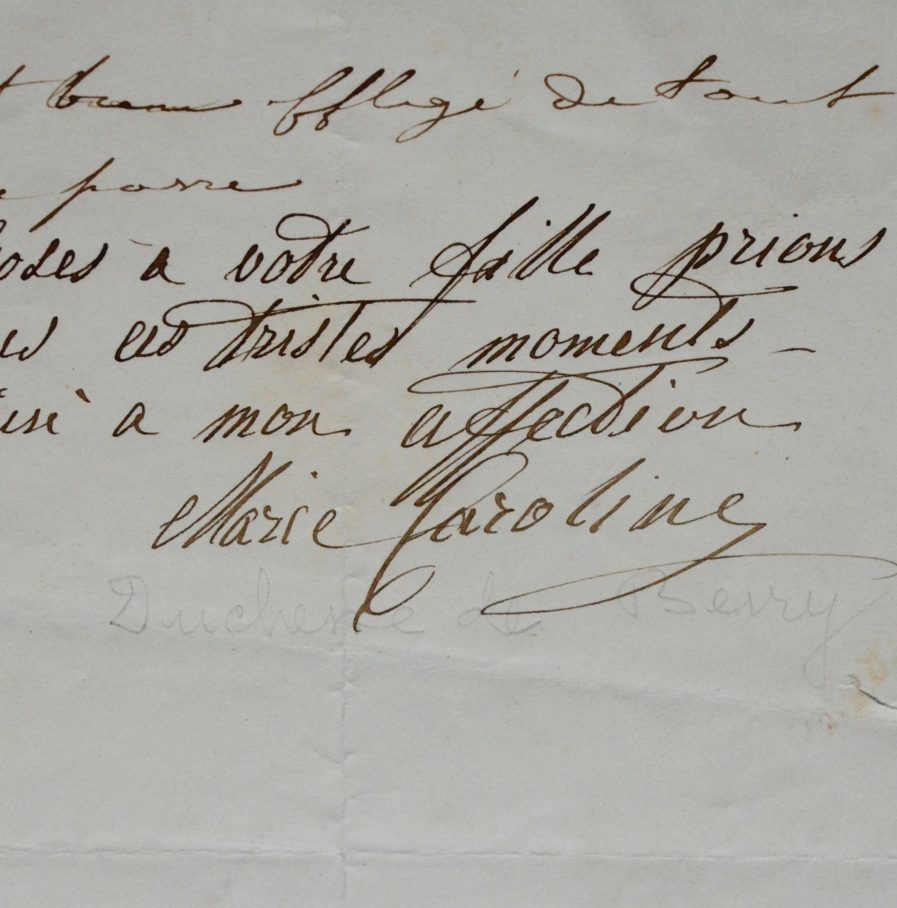 bien afflige de tout
passe
oses a votre fille prions
ces tristes moments -
a mon affection
Marie Caroline
Duchesse de Berry